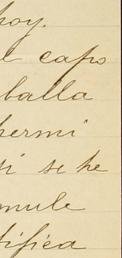 hoy.
l capo
balla
hermi
si se he
mule
tifica